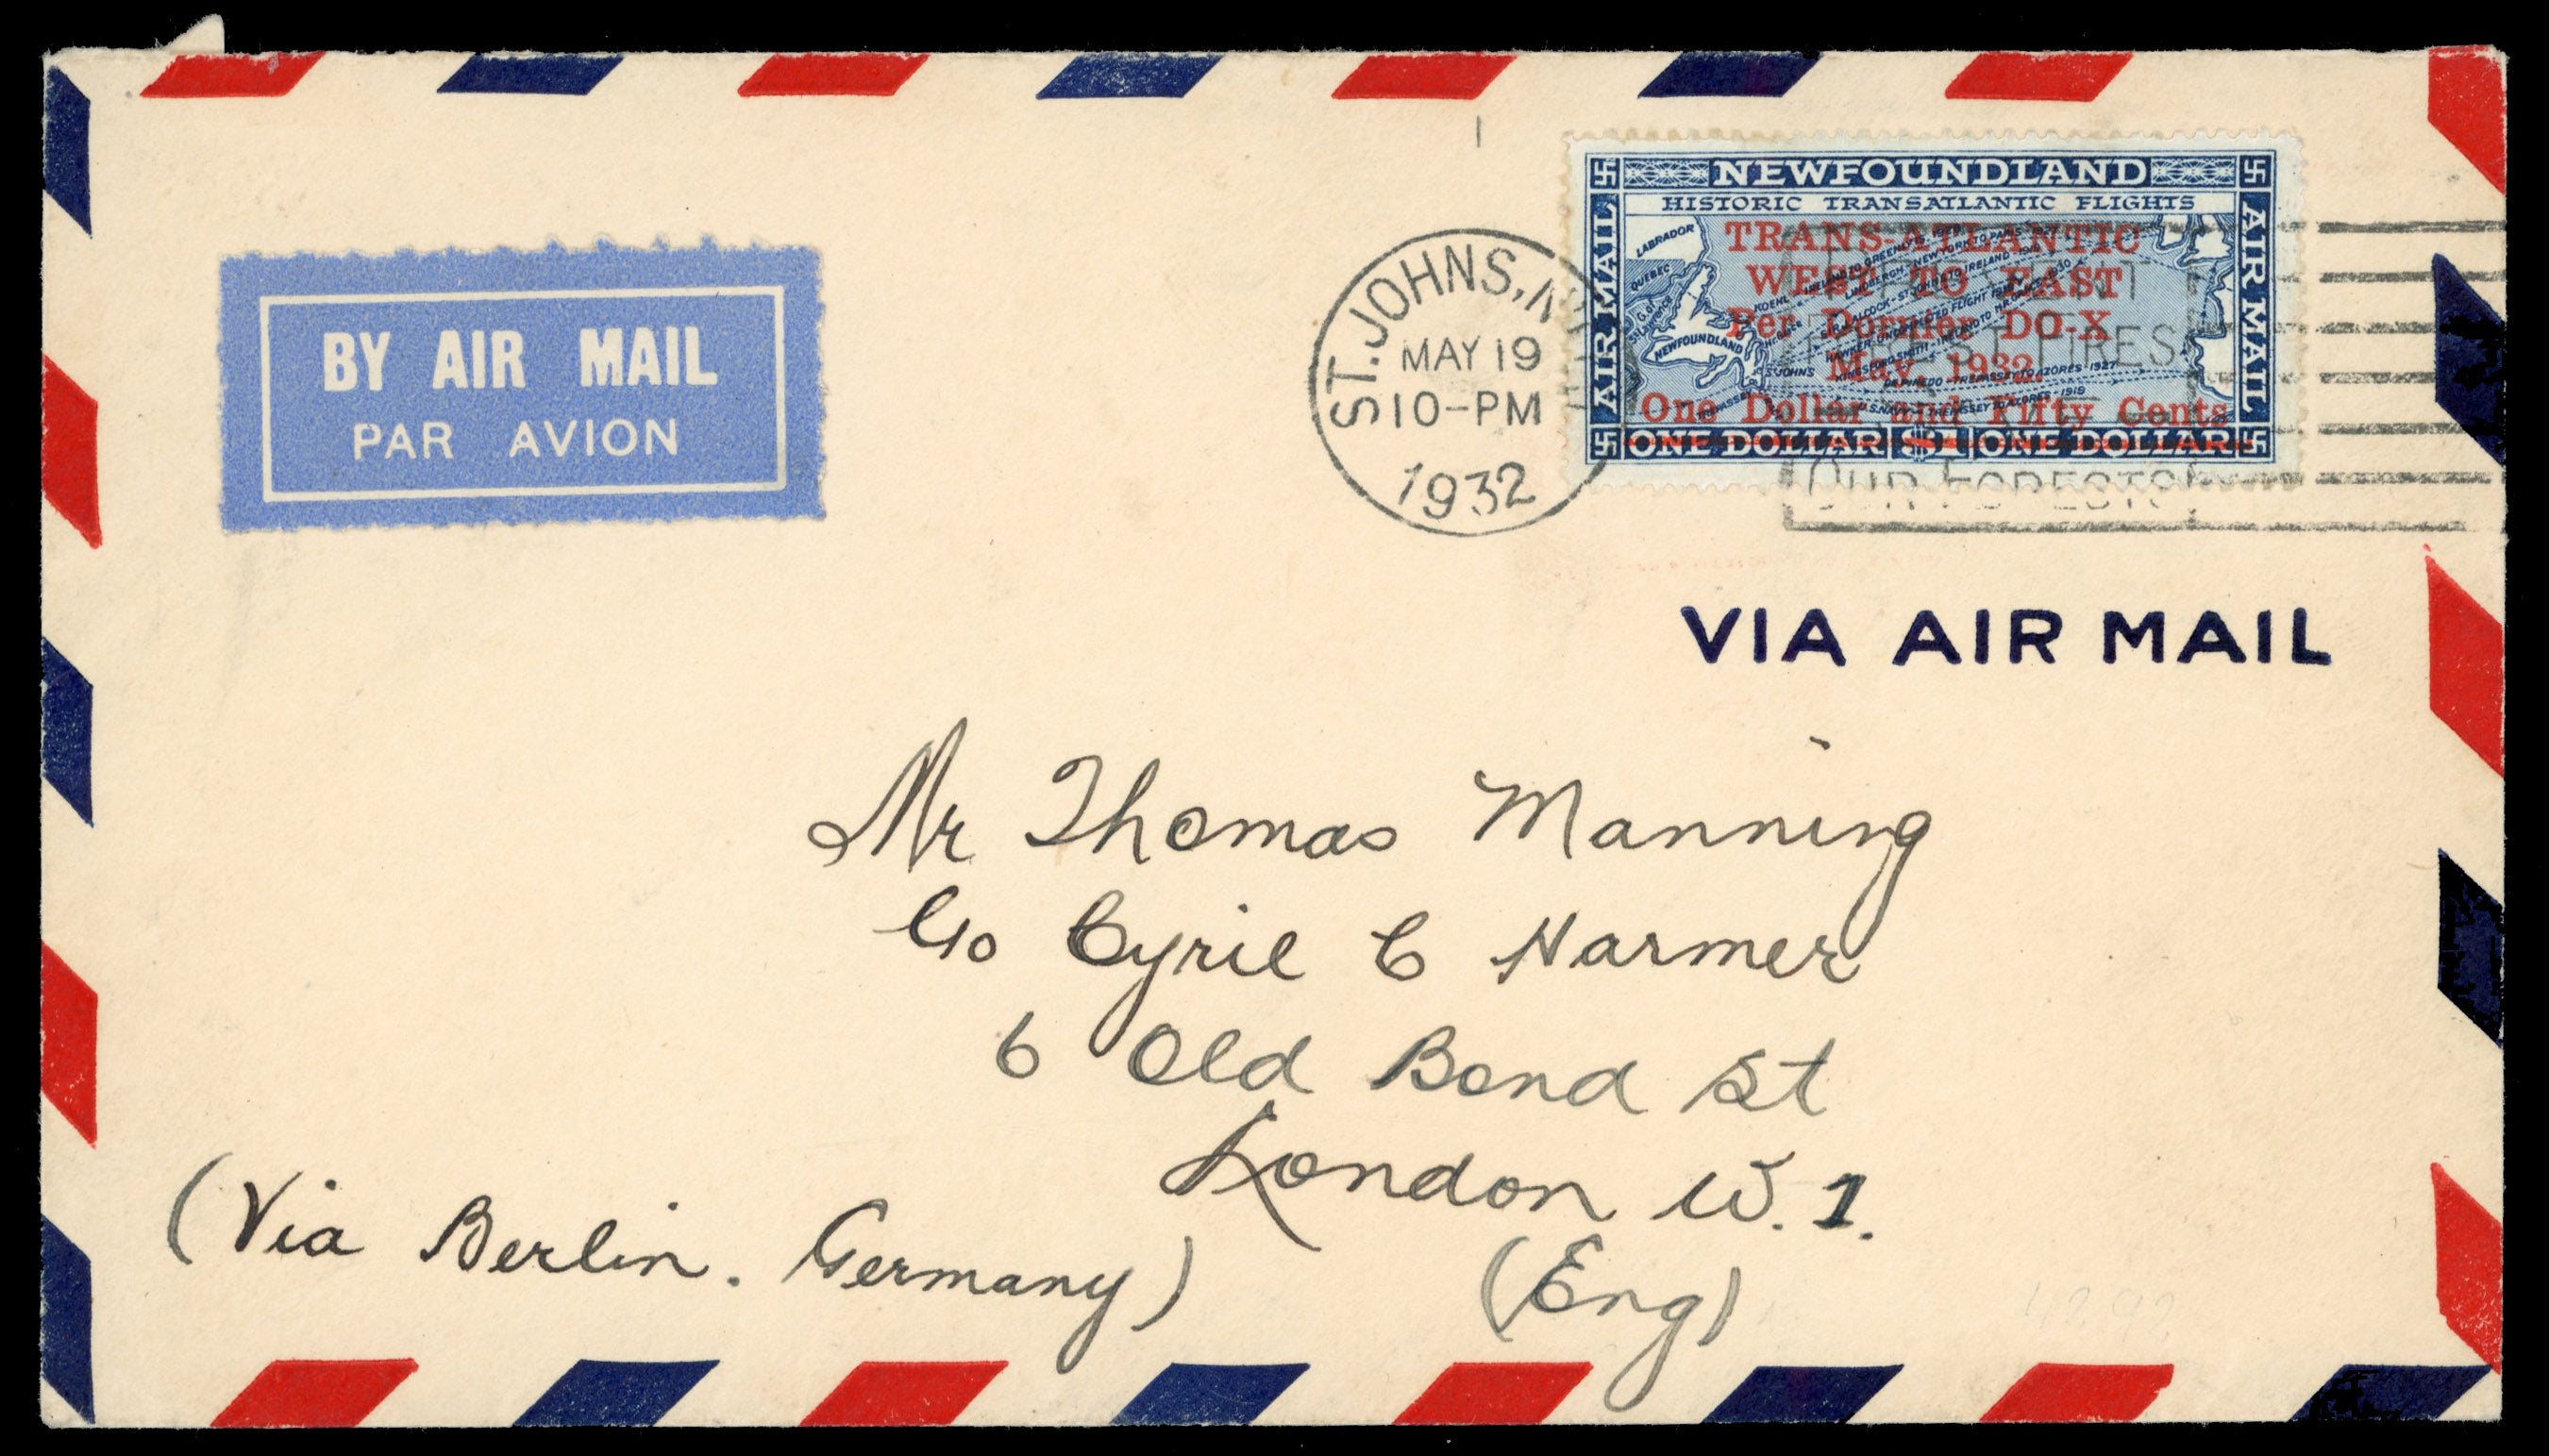 BY AIR MAIL
PAR AVION
ST. JOHNS, N
MAY 19
10-PM
1932
NEWFOUNDLAND
HISTORIC TRANSATLANTIC FLIGHTS
AIR MAIL
AIR MAIL
LABRADOR
QUEBEC
G. of St Lawrence
NEWFOUNDLAND
ST JOHNS
TREPASSEY
TRANS-ATLANTIC
WEST TO EAST
Per Dornier DO-X
May, 1932.
One Dollar and Fifty Cents
DE PINEDO - TREPASSEY TO AZORES - 1927
U.S. NAVY - TREPASSEY TO AZORES - 1919
ONE DOLLAR $1 ONE DOLLAR
FOREST FIRES
OUR FORESTS
VIA AIR MAIL
Mr Thomas Manning
C/o Cyril C Harmer
6 Old Bond St
London W. 1.
(Eng)
(Via Berlin. Germany)